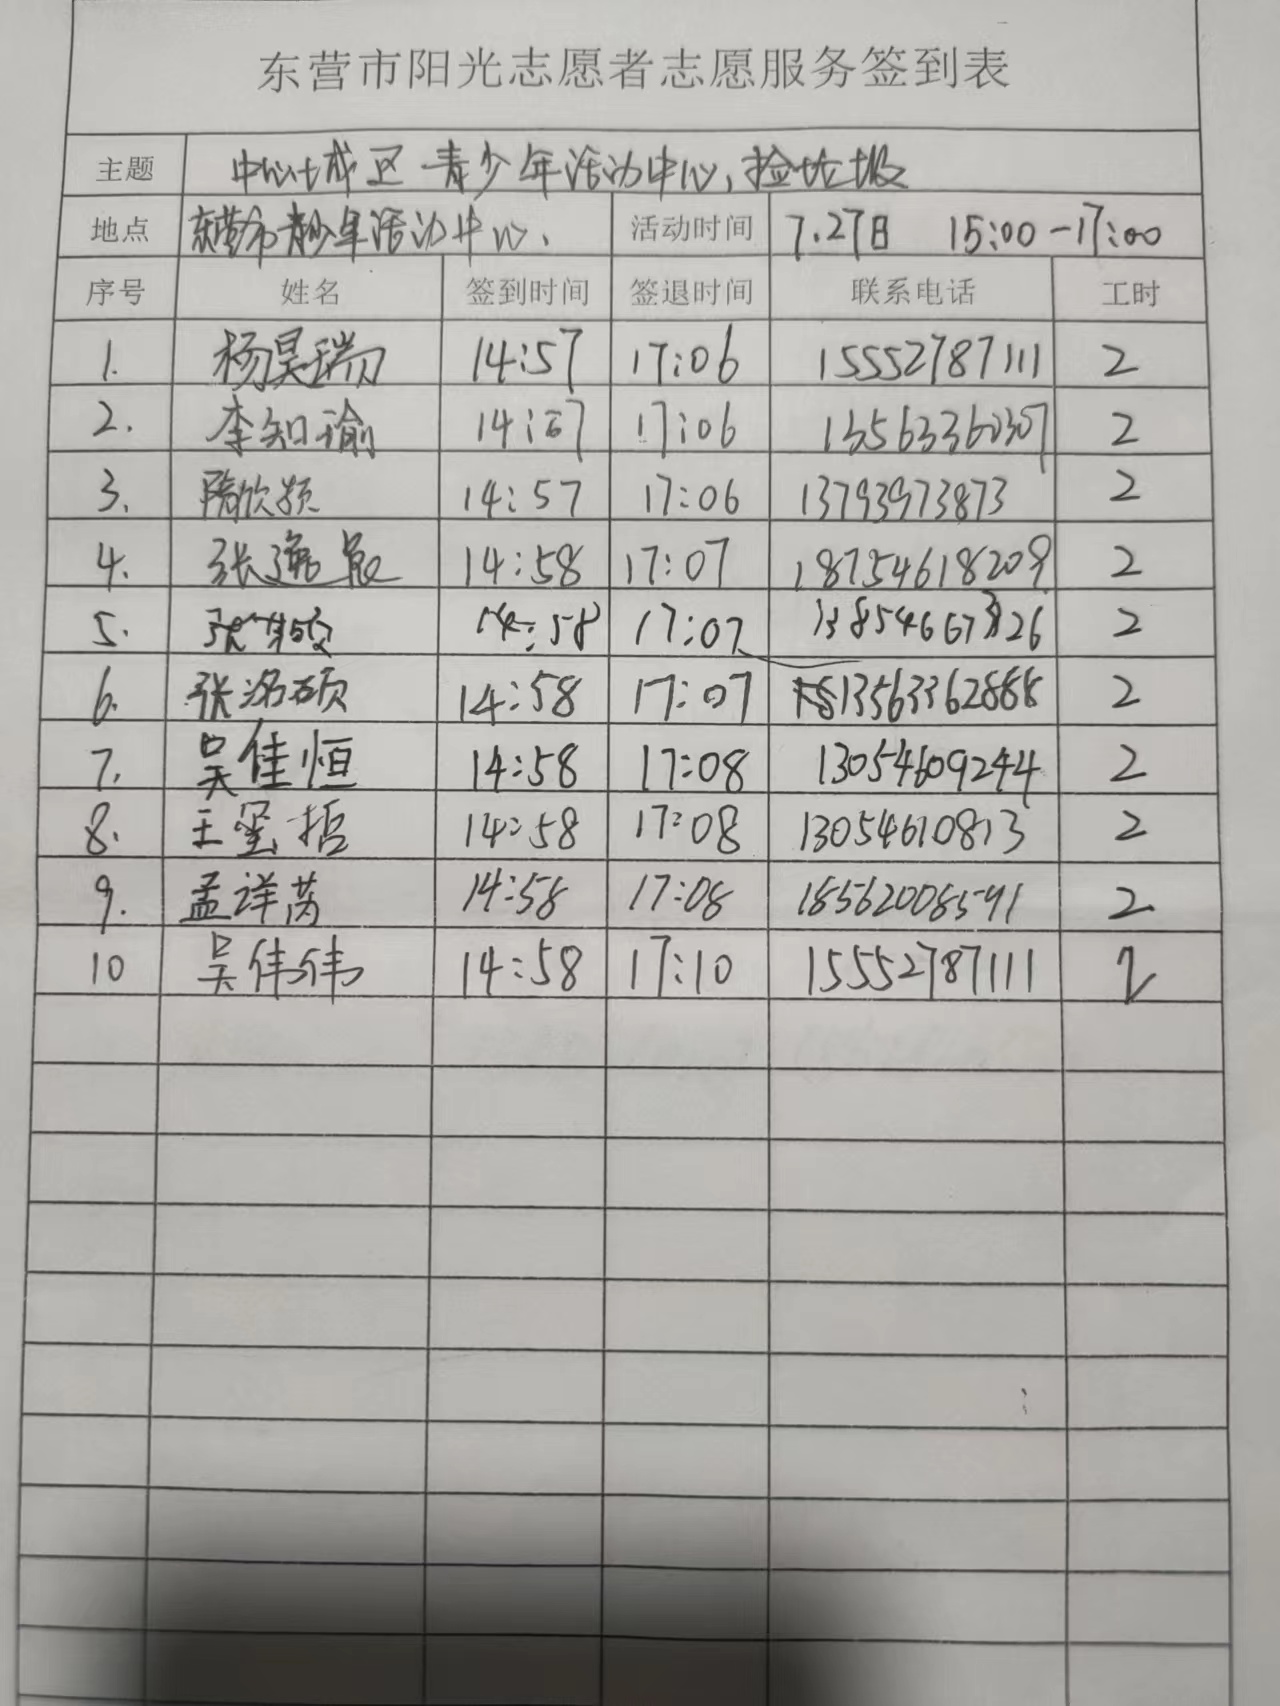 东营市阳光志愿者志愿服务签到表
主题 中心城区青少年活动中心,捡垃圾
地点 东营市青少年活动中心、 活动时间 7.27日 15:00-17:00
序号 姓名 签到时间 签退时间 联系电话 工时
1. 杨昊瑞 14:57 17:06 15552787111 2
2. 李知瑜 14:57 17:06 13563360307 2
3. 隋欣颍 14:57 17:06 13793973873 2
4. 张逸 14:58 17:07 18754618209 2
5. 张 14:58 17:07 2
6. 张洺硕 14:58 17:07 13563362888 2
7. 吴佳恒 14:58 17:08 13054609244 2
8. 王玺哲 14:58 17:08 13054610813 2
9. 孟详芮 14:58 17:08 18562008591 2
10 吴伟伟 14:58 17:10 15552787111 2